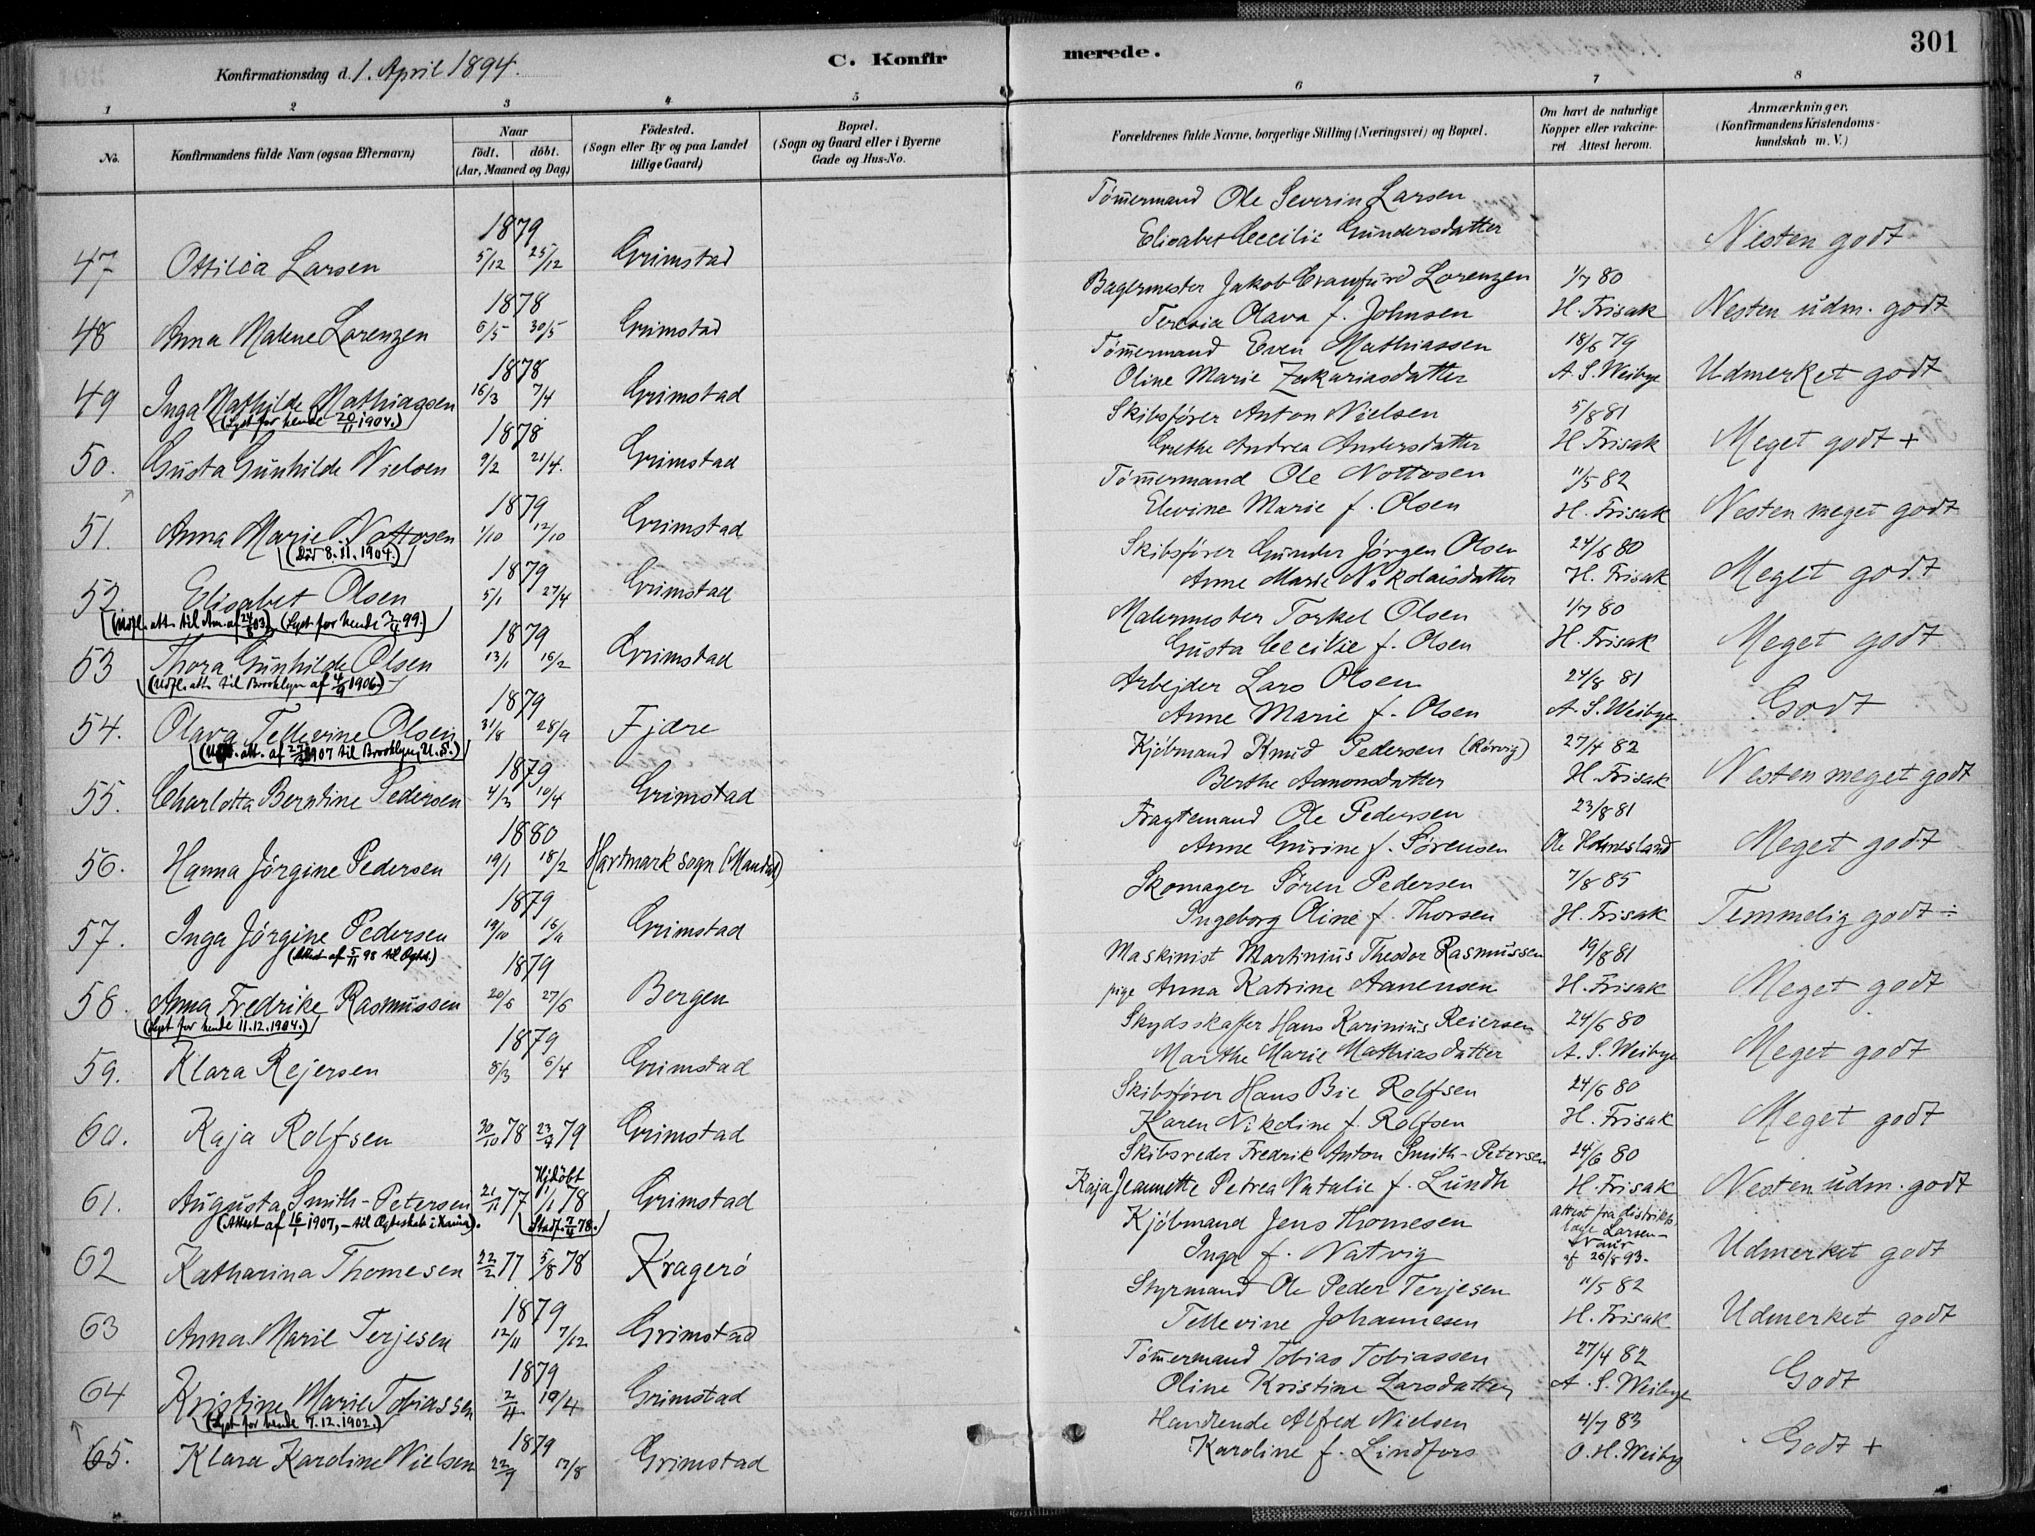 301
Konfirmationsdag d. 1. April 1894.
C. Konfirmerede.
1 2 3 4 5 6 7 8
No.
Konfirmandens fulde Navn (ogsaa Efternavn)
Naar
födt. döbt.
(Aar, Maaned og Dag)
Födested.
(Sogn eller By og paa Landet
tillige Gaard)
Bopæl.
(Sogn og Gaard eller i Byerne
Gade og Hus-No.
Forældrenes fulde Navne, borgerlige Stilling (Næringsvei) og Bopæl.
Om havt de naturlige
Kopper eller vakcine-
ret Attest herom.
Anmærkninger.
(Konfirmandens Kristendoms-
kundskab m. V.)
1879
47 Ottilia Larsen 5/12 25/12 Grimstad
Tömmermand Ole Severin Larsen
Elisabet Cecilie Gundersdatter
Nesten godt
1878
48 Anna Malene Lorenzen 6/5 30/5 Grimstad
Bagermester Jakob Cranfurd Lorenzen 1/7 80
Teresia Olava f. Johnsen H. Frisak
Nesten udm. godt
1878
49 Inga Mathilde Mathiassen 16/3 7/4 Grimstad
(Lyst for hende 20/11 1904.)
Tömmermand Even Mathiassen 18/6 79
Oline Marie Zakariasdatter A. S. Weibye
Udmerket godt
1878
50. Gusta Gunhilde Nielsen 9/2 21/4. Grimstad
Skibsförer Anton Nielsen 5/8 81
Grethe Andrea Andersdatter H. Frisak
Meget godt +
1879
51. Anna Marie Nottosen 1/10 12/10 Grimstad
(Död 8.11.1904.)
Tömmermand Ole Nottosen 11/5 82
Elevine Marie f. Olsen H. Frisak
Nesten meget godt
1879
52 Elisabet Olsen 5/1 27/4 Grimstad
(Udfl. att. til Am. af 24/8 03) (Lyst for hende 99.)
Skibsförer Gunder Jörgen Olsen 24/6 80
Anne Marie Nikolaisdatter H. Frisak
Meget godt
1879
53 Thora Gunhilde Olsen 13/1 16/2 Grimstad
(Udfl. att. til Brooklyn af 4/9 1906.)
Malermester Torkel Olsen 1/7 80
Gusta Cecilie f. Olsen H. Frisak
Meget godt
1879
54. Olava Tellevine Olsen 31/8 28/9 Fjære
(Udfl. att. af 1907 til Brooklyn, U.S.)
Arbejder Lars Olsen 24/8 81
Anne Marie f. Olsen A. S. Weibye.
Godt
1879
55. Charlotta Berntine Pedersen 4/3 10/4 Grimstad
Kjöbmand Knud Pedersen (Rörvig) 27/4 82
Berthe Aanonsdatter H. Frisak
Nesten meget godt
1880
56. Hanna Jörgine Pedersen 19/1 18/2 Hartmark sogn (Mandal)
Fragtemand Ole Pedersen 23/8 81
Anne Gurine f. Sörensen Ole Holmesland
Meget godt
1879
57. Inga Jörgine Pedersen 19/10 16/11 Grimstad
Skomager Sören Pedersen 7/8 85
Ingeborg Oline f. Thorsen H. Frisak
Temmelig godt ÷
1879
58. Anna Fredrike Rasmussen 20/6 27/6 Bergen
(Lyst for hende 11.12.1904.)
Maskinist Martinius Theodor Rasmussen 19/8 81
pige Anna Katrine Aanensen H. Frisak
Meget godt
1879
59. Klara Rejersen 8/3 6/4 Grimstad
Skydsskaffer Hans Karinius Reiersen 24/6 80
Marthe Marie Mathiasdatter A. S. Weibye
Meget godt
60. Kaja Rolfsen 30/10 78 23/4 79 Grimstad
Skibsförer Hans Bie Rolfsen 24/6 80
Karen Nikoline f. Rolfsen H. Frisak
Meget godt
Hjdöbt
61. Augusta Smith-Petersen 21/11 77 1/1 78 Grimstad
(Attest af 16/1 1907, – til Ægteskab i Xania).
Skibsreder Fredrik Anton Smith-Petersen 24/6 80
Kaja Jeannette Petrea Natalie f. Lundh H. Frisak
Nesten udm. godt
62 Katharina Thomesen 22/2 77 5/8 78 Kragerö
Kjöbmand Jens Thomesen attest fra distrikts
Inga f. Natvig
læge Larsen-
Naur
af 26/8 93.
Udmerket godt
1879
63 Anna Marie Terjesen 12/11 7/12 Grimstad
Styrmand Ole Peder Terjesen 11/5 82
Tellevine Johannesen H. Frisak
Udmerket godt
1879
64 Kristine Marie Tobiassen 2/4 19/4 Grimstad
(Lyst for hende 7.12.1902.)
Tömmermand Tobias Tobiassen 27/4 82
Oline Kristine Larsdatter A. S. Weibye
Godt
1879
65. Klara Karoline Nielsen 22/9 17/8 Grimstad
Handlende Alfred Nielsen 4/7 83
Karoline f. Lindfors O. H. Weiby
Godt +